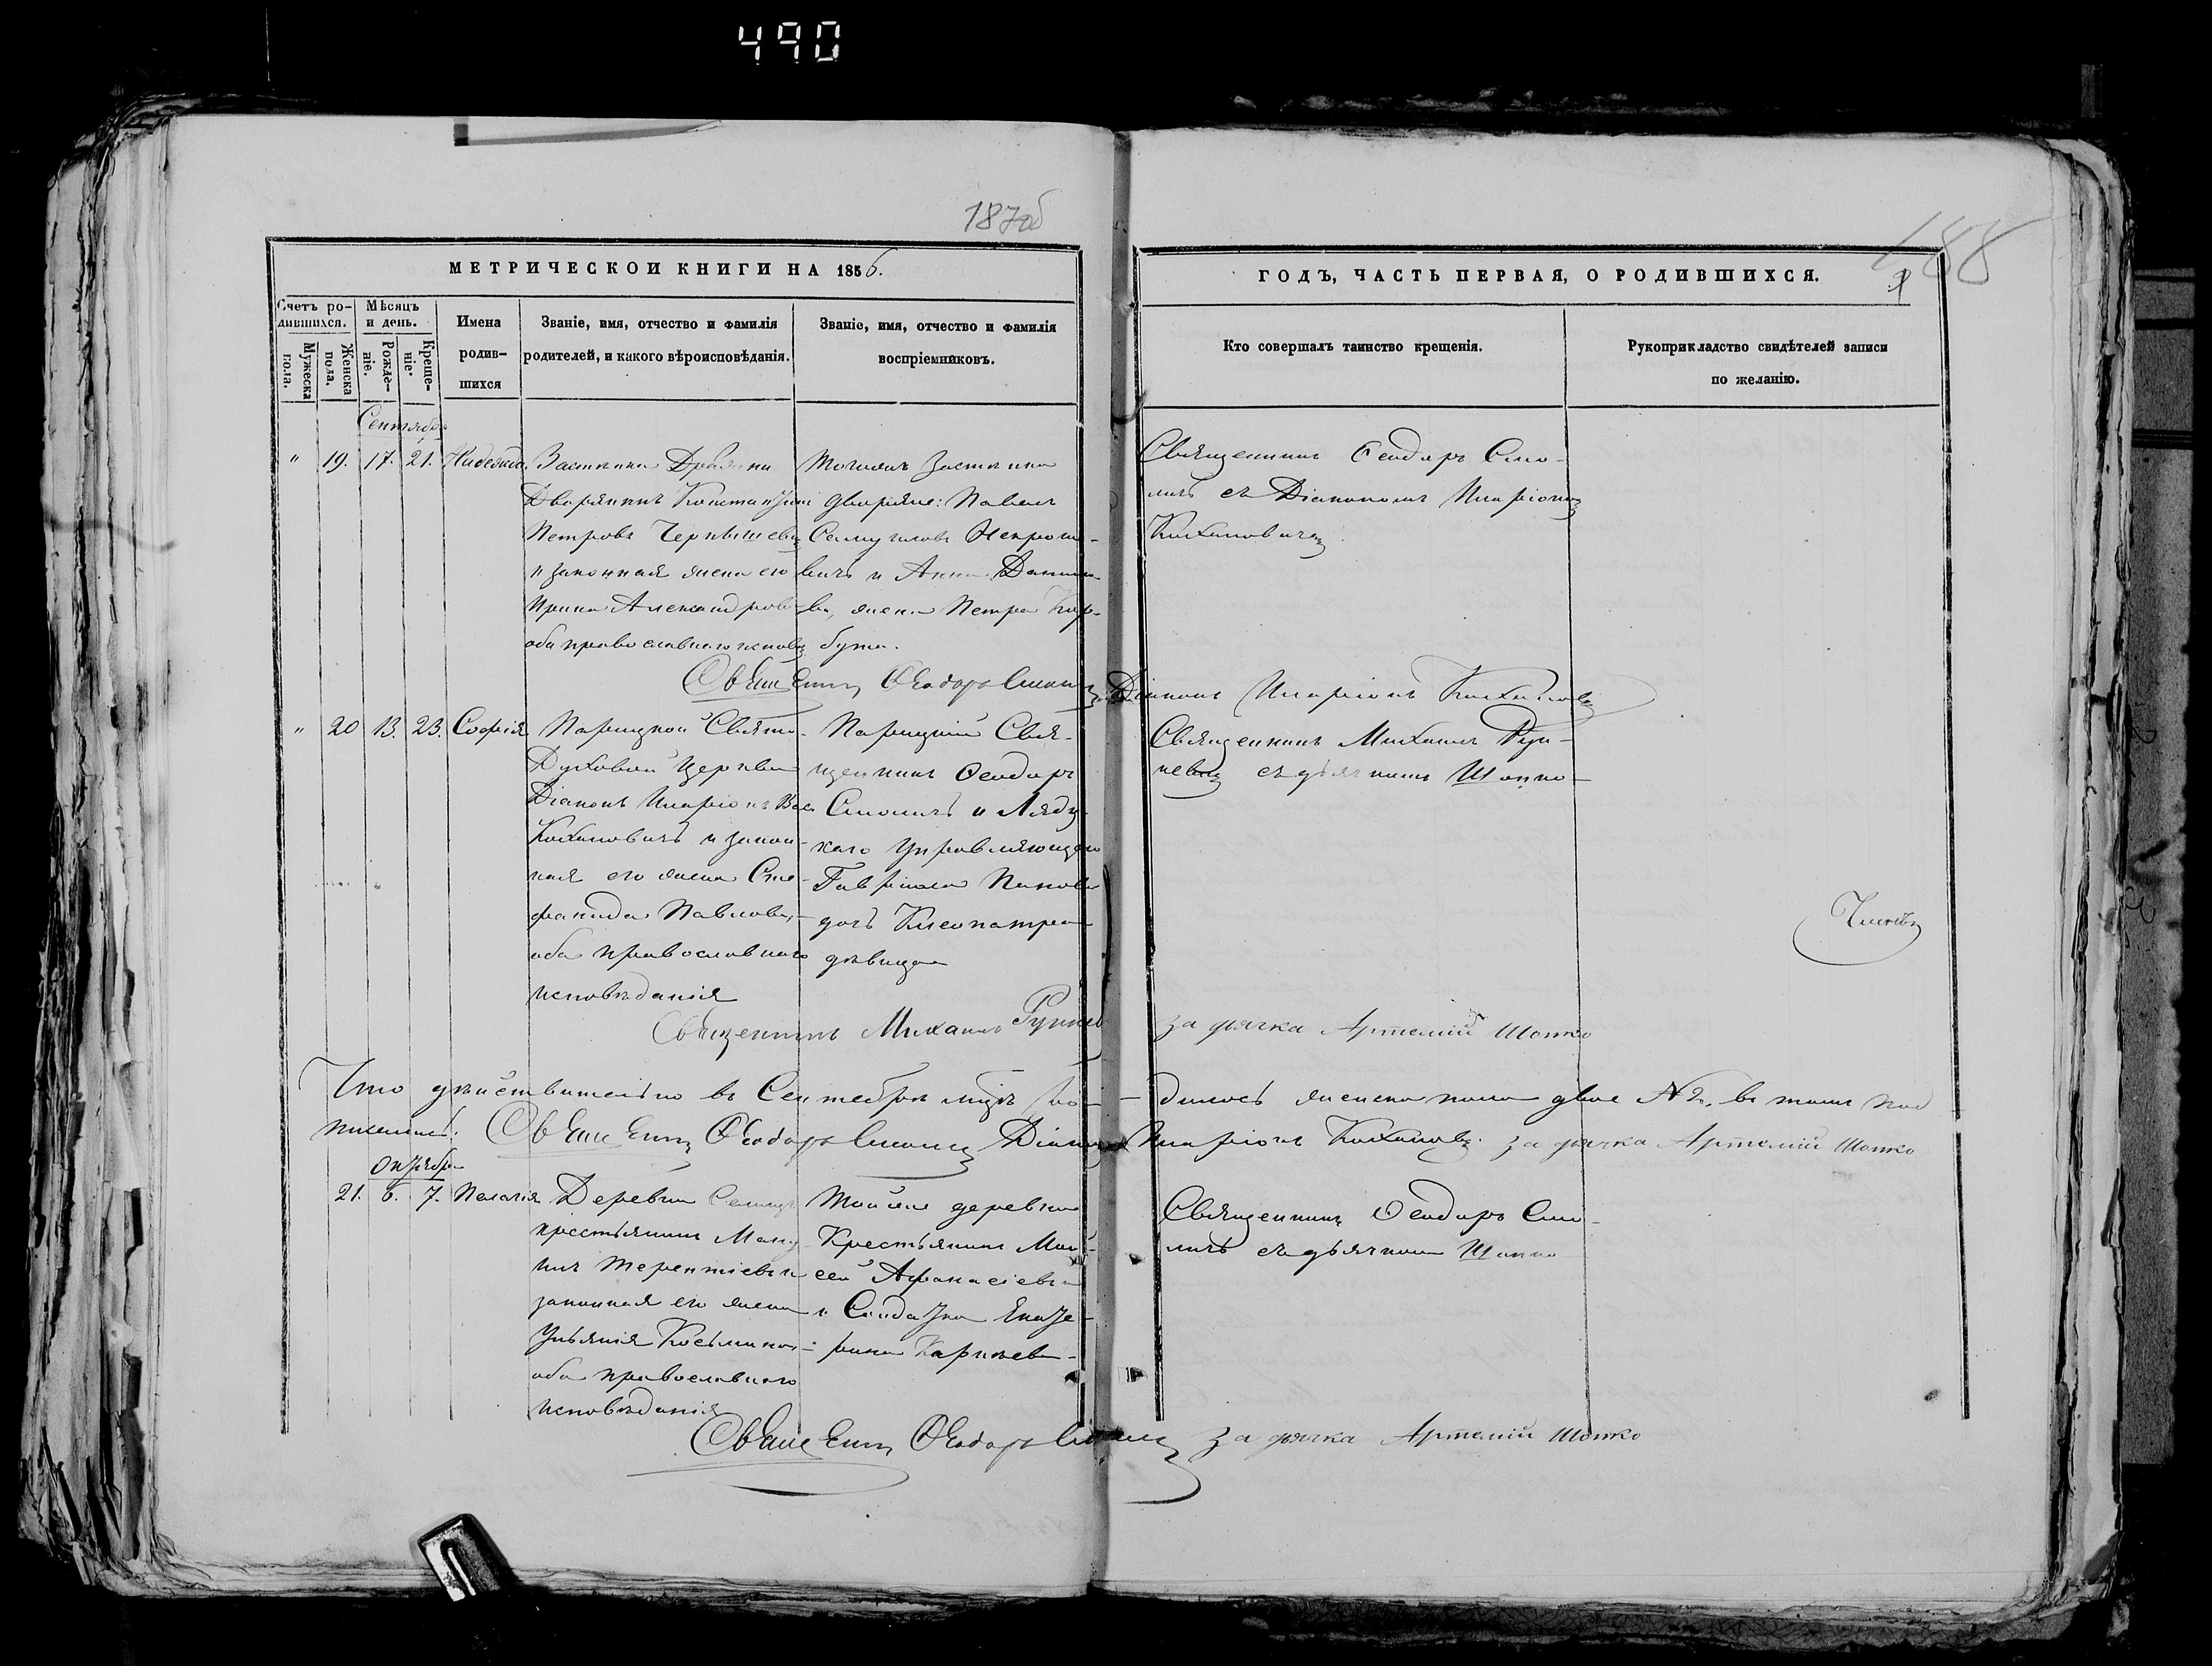 490
187об
188
МЕТРИЧЕСКОЙ КНИГИ НА 1856.
ГОДЪ, ЧАСТЬ ПЕРВАЯ, О РОДИВШИХСЯ.
Счетъ ро-
дившихся.
Мужеска
пола.
Женска
пола.
Мѣсяцъ
и день.
Рожде-
ніе.
Креще-
ніе.
Имена
родив-
шихся
Званіе, имя, отчество и фамилія
родителей, и какого вѣроисповѣданія.
Званіе, имя, отчество и фамилія
воспріемниковъ.
Кто совершалъ таинство крещенія.
Рукоприкладство свидѣтелей записи
по желанію.
Сентябрь
" 19. 17. 21. Надежда
Застѣнка
Дворянинъ Константинъ
Петровъ
и законная жена его
Ирина Александрова
оба православнаго исповѣд.
Тогожъ застѣнка
дворяне: Павелъ
Самуиловъ
вичъ и Анна Данило-
ва, жена Петра Кор-
бута.
Священникъ Ѳеодоръ Смо-
личъ съ Діакономъ Иларіономъ
Кохановичемъ
Священникъ Ѳеодоръ Смоличъ Діаконъ Иларіонъ Кохановичъ
" 20 13. 23. Софія
Парицкой Свято-
Духовой Церкви
Діаконъ Иларіонъ Вас.
Кохановичъ и закон-
ная его жена Сте-
фанида Павлова,
оба православнаго
исповѣданія
Парицкій Свя-
щенникъ Ѳеодоръ
Смоличъ и Лядц-
каго Управляющаго
Гавріила Панова
дочь Клеопатра
дѣвица
Священникъ Михаилъ Рун-
кевичъ съ дьячкомъ Шопко
Священникъ Михаилъ Рункев за дячка Артемій Шопко
Что дѣйствительно въ Сентябрѣ мѣсяцѣ ро- дилось женска пола двое № 2, въ томъ под
писались: Священникъ Ѳеодоръ Смоличъ Діаконъ Иларіонъ Кохановичъ за дячка Артемій Шопко
Октябрь
21. 6. 7. Пелагія
Деревни
крестьянинъ
Терентіевъ и
законная его жена
Ульянія Косьмина
оба православнаго
исповѣданія
Той же деревни
Крестьянинъ Мои-
сей Афанасіевъ
и Солдатка Екате-
рина Карнѣева
Священникъ Ѳеодоръ Смо-
личъ съ дьячкомъ Шопко
Священникъ Ѳеодоръ Смоличъ за дячка Артемій Шопко